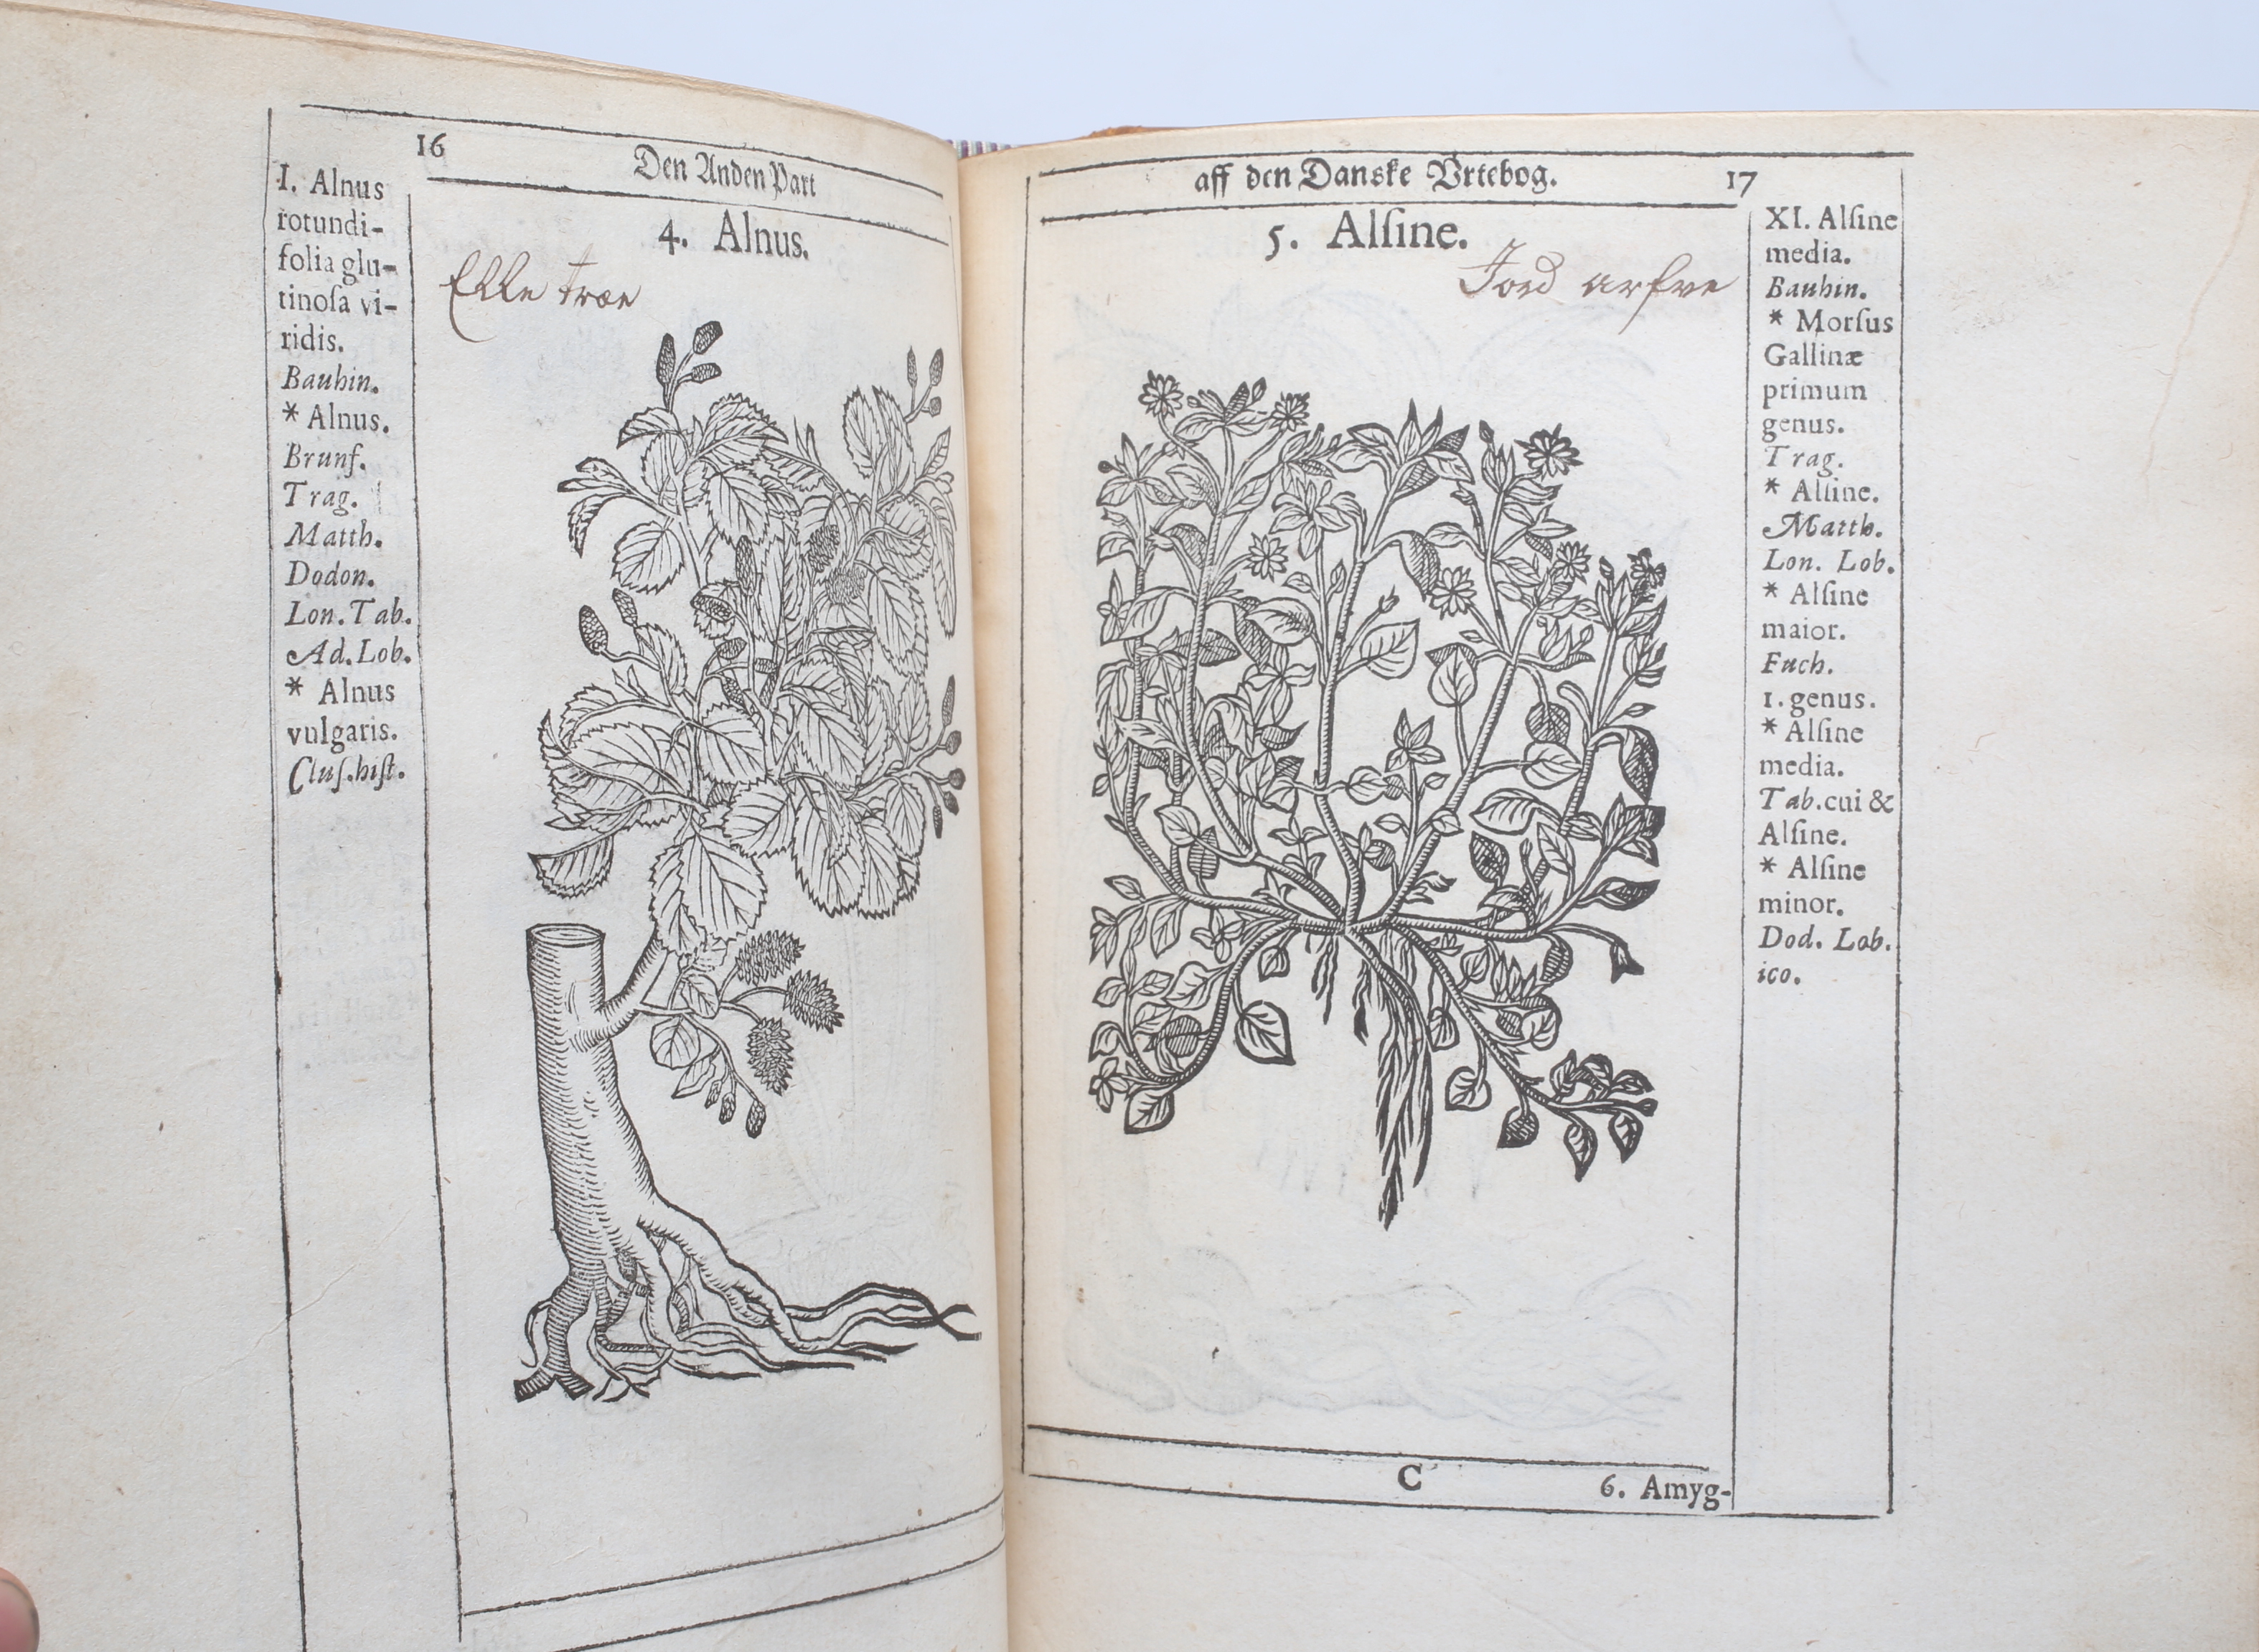 16
Den Anden Part
4. Alnus.
Elle træe
I. Alnus
rotundi-
folia glu-
tinoſa vi-
ridis.
Bauhin.
* Alnus.
Brunf.
Trag.
Matth.
Dodon.
Lon. Tab.
Ad. Lob.
* Alnus
vulgaris.
Cluſ. hiſt.
aff den Danske Vrtebog.
17
5. Alſine.
Jord arfve
XI. Alſine
media.
Bauhin.
* Morſus
Gallinæ
primum
genus.
Trag.
* Alſine.
Matth.
Lon. Lob.
* Alſine
maior.
Fuch.
1. genus.
* Alſine
media.
Tab. cui &
Alſine.
* Alſine
minor.
Dod. Lob.
ico.
C
6. Amyg-